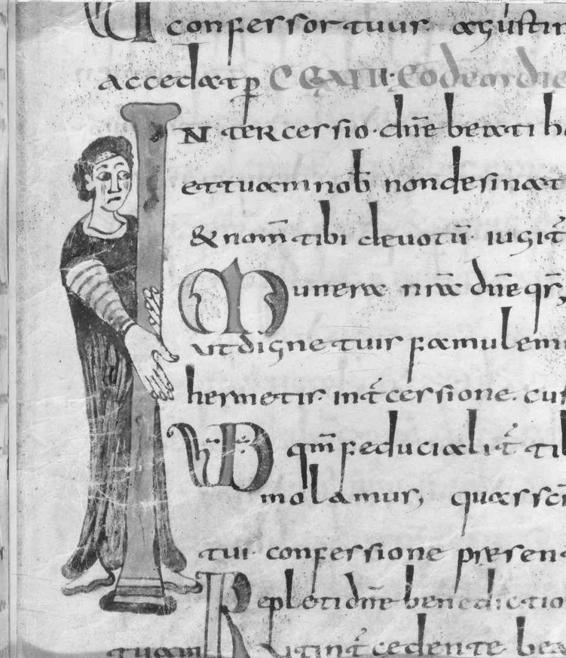 confessor tuus agustin
accedat p̄ CCXIII. Eodem die
INtercessio dn̄e beati h
et tuam nob̄ non desinat
& nom̄ tibi devotū iugit̄
Munera nr̄a dn̄e qs̄
ut digne tuis famulem
hermetis int̄cessione cus
VD qm̄ feducialit̄ ti
molamur, quas sc̄i
tui confessione presen
Repleti dn̄e benedictio
tuam int̄cedente bea